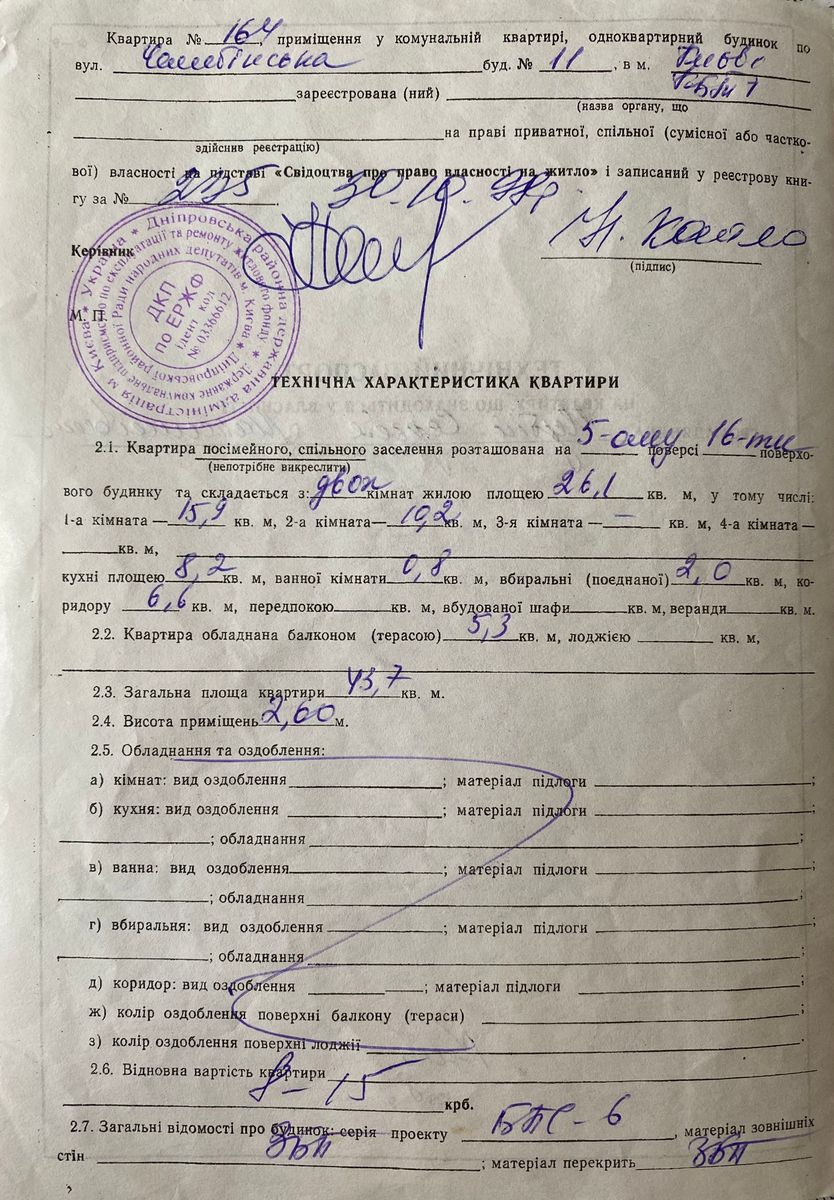 Квартира № 164, приміщення у комунальній квартирі, одноквартирний будинок по
вул. Челябінська буд. № 11, в м.
зареєстрована (ний)
(назва органу, що
на праві приватної, спільної (сумісної або частко-
здійснив реєстрацію)
вої) власності на підстві «Свідоцтва про право власності на житло» і записаний у реєстрову кни-
гу за № 235. 30.10.98р
Керівник
(підпис)
М. П.
Україна * Дніпровська районна державна адміністрація м. Києва *
ДКП
по ЕРЖФ
Ідент код
№ 03366612
ТЕХНІЧНА ХАРАКТЕРИСТИКА КВАРТИРИ
2.1. Квартира посімейного, спільного заселення розташована на 5-ому поверсі 16-ти поверхо-
(непотрібне викреслити)
вого будинку та складається з: двох кімнат жилою площею 26,1 кв. м, у тому числі:
1-а кімната — 15,9 кв. м, 2-а кімната— 10,2 кв. м, 3-я кімната — — кв. м, 4-а кімната —
кв. м,
кухні площею 8,2 кв. м, ванної кімнати 0,8 кв. м, вбиральні (поєднаної) 2,0 кв. м, ко-
ридору 6,6 кв. м, передпокою кв. м, вбудованої шафи кв. м, веранди кв. м.
2.2. Квартира обладнана балконом (терасою) 5,3 кв. м, лоджією кв. м,
2.3. Загальна площа квартири 43,7 кв. м.
2.4. Висота приміщень 2,60 м.
2.5. Обладнання та оздоблення:
а) кімнат: вид оздоблення ; матеріал підлоги ;
б) кухня: вид оздоблення ; матеріал підлоги
; обладнання ;
в) ванна: вид оздоблення ; матеріал підлоги ;
; обладнання ;
г) вбиральня: вид оздоблення ; матеріал підлоги ;
; обладнання ;
д) коридор: вид оздоблення ; матеріал підлоги ;
ж) колір оздоблення поверхні балкону (тераси) ;
з) колір оздоблення поверхні лоджії
2.6. Відновна вартість квартири
8-15 крб.
2.7. Загальні відомості про будинок: серія проекту БПС-6, матеріал зовнішніх
стін ЗБП ; матеріал перекрить ЗБП